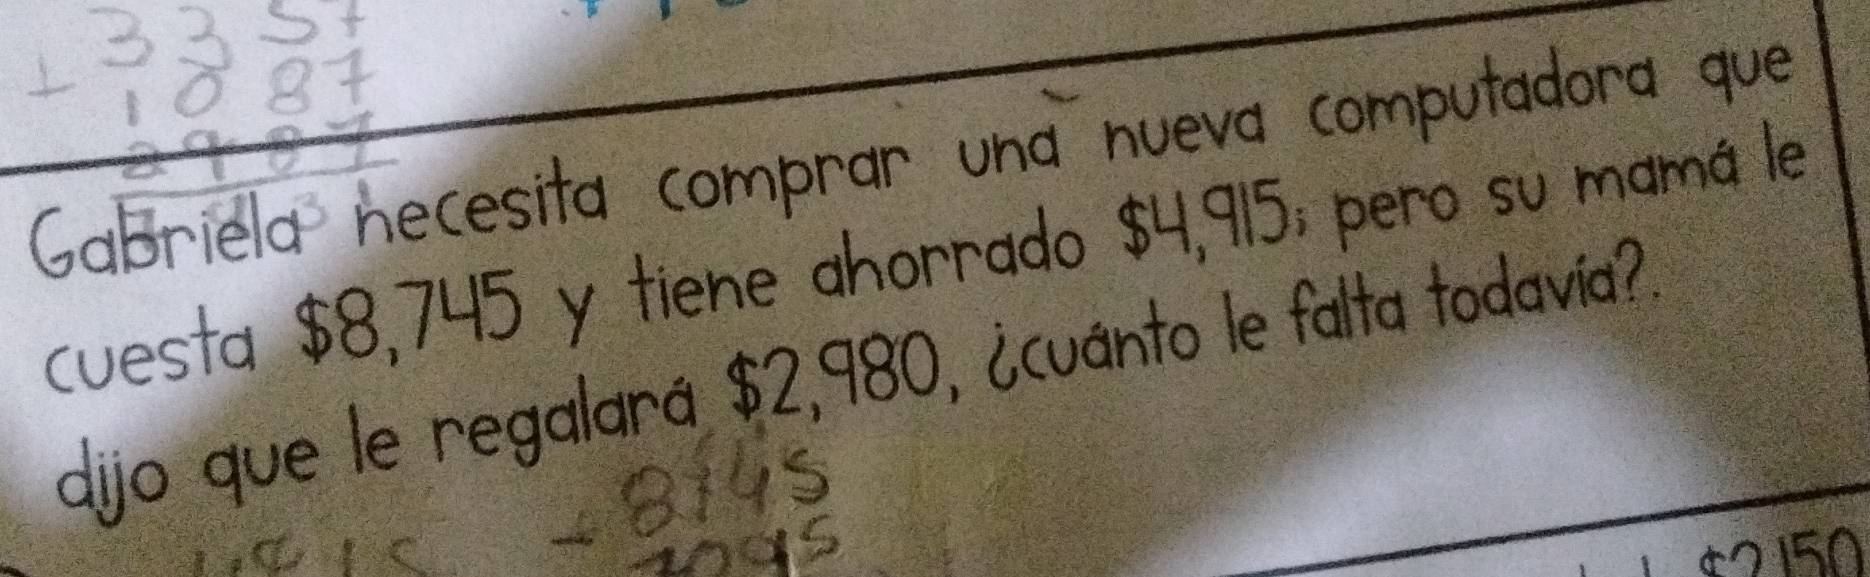 3357
+ 1087
2987
Gabriela necesita comprar una nueva computadora que
cuesta $8,745 y tiene ahorrado $4,915; pero su mamá le
dijo que le regalará $2,980, ¿cuánto le falta todavía?.
- 8745
$2150